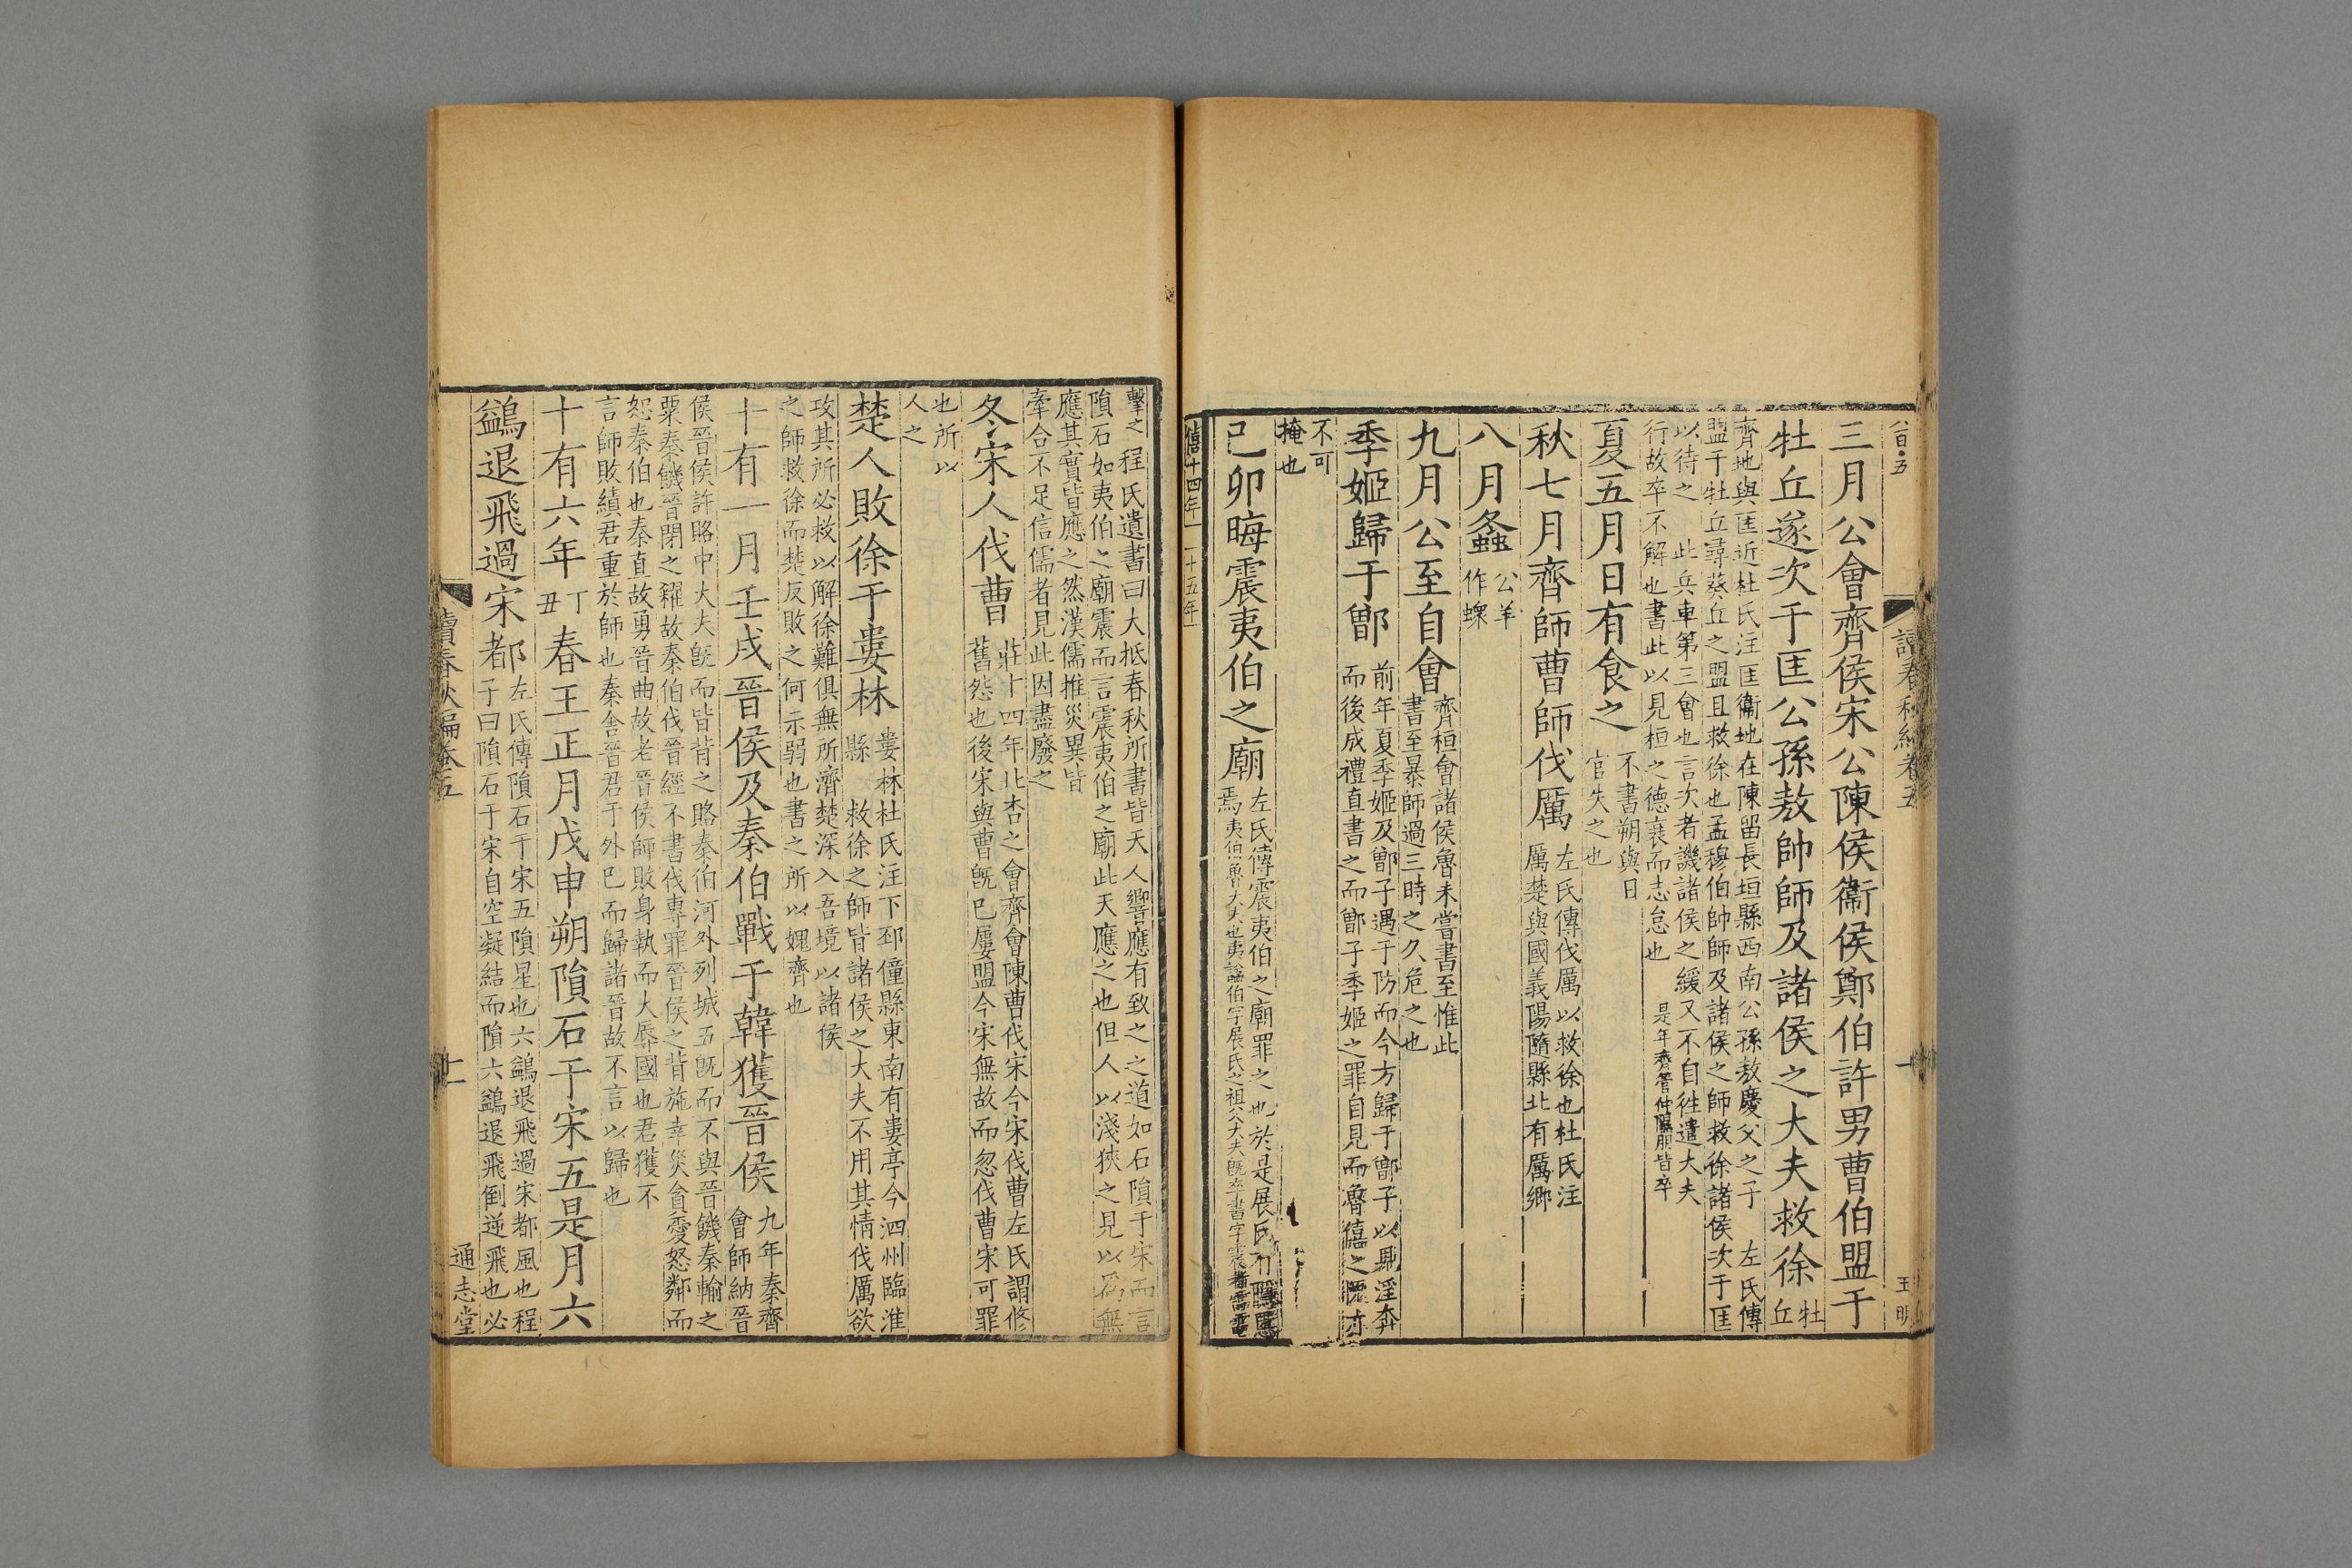 八百·五
讀春秋編卷五
十
玉明
三月公會齊侯宋公陳侯衞侯鄭伯許男曹伯盟于
牡丘遂次于匡公孫敖帥師及諸侯之大夫救徐牡丘
齊地與匡近杜氏注匡衞地在陳留長垣縣西南公孫敖慶父之子 左氏傳
盟于牡丘尋葵丘之盟且救徐也孟穆伯帥師及諸侯之師救徐諸侯次于匡
以待之 此兵車第三會也言次者譏諸侯之緩又不自徃遣大夫
行故卒不解也書此以見桓之德衰而志怠也 是年齊管仲隰朋皆卒
夏五月日有食之不書朔與日
官失之也
秋七月齊師曹師伐厲左氏傳伐厲以救徐也杜氏注
厲楚與國義陽隨縣北有厲鄉
八月螽公羊
作蝝
九月公至自會齊桓會諸侯魯未嘗書至惟此
書至暴師過三時之久危之也
季姬歸于鄫前年夏季姬及鄫子遇于防而今方歸于鄫子以鼎淫奔
而後成禮直書之而鄫子季姬之罪自見而魯僖之
不可
掩也
己卯晦震夷伯之廟左氏傳震夷伯之廟罪之也於是展氏有隱慝
焉夷伯魯大夫也夷謚伯字展氏之祖父大夫旣卒書字震者雷電
僖十四年 十五年
擊之 程氏遺書曰大抵春秋所書皆天人響應有致之之道如石隕于宋而言
隕石如夷伯之廟震而言震夷伯之廟此天應之也但人以淺狹之見以爲無
應其實皆應之然漢儒推災異皆
牽合不足信儒者見此因盡廢之
冬宋人伐曹莊十四年北杏之會齊會陳曹伐宋今宋伐曹左氏謂修
舊怨也後宋與曹旣已屢盟今宋無故而忽伐曹宋可罪
也所以
人之
楚人敗徐于婁林婁林杜氏注下邳僮縣東南有婁亭今泗州臨淮
縣 救徐之師皆諸侯之大夫不用其情伐厲欲
攻其所必救以解徐難俱無所濟楚深入吾境以諸侯
之師救徐而楚反敗之何示弱也書之所以媿齊也
十有一月壬戌晉侯及秦伯戰于韓獲晉侯九年秦齊
會師納晉
侯晉侯許賂中大夫旣而皆背之賂秦伯河外列城五旣而不與晉饑秦輸之
粟秦饑晉閉之糴故秦伯伐晉經不書伐專罪晉侯之背施幸災貪愛怒鄰而
恕秦伯也秦直故勇晉曲故老晉侯師敗身執而大辱國也君獲不
言師敗績君重於師也秦舍晉君于外已而歸諸晉故不言以歸也
十有六年丁丑春王正月戊申朔隕石于宋五是月六
鷁退飛過宋都左氏傳隕石于宋五隕星也六鷁退飛過宋都風也程
子曰隕石于宋自空凝結而隕六鷁退飛倒逆飛也必
讀春秋編卷五
十一
通志堂